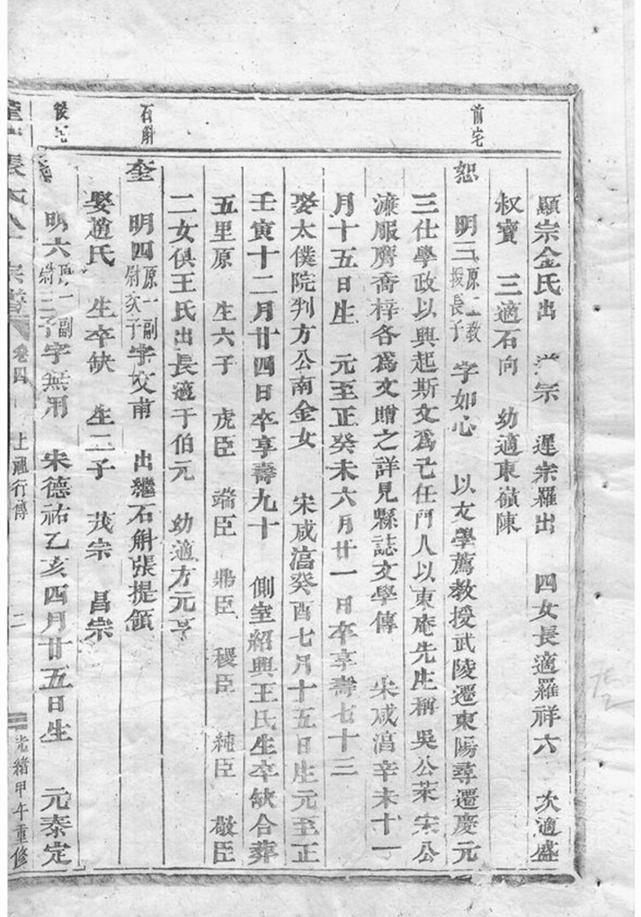 前宅
石斛
後宅
顯宗金氏出 宗 遲宗羅出 四女長適羅祥六 次適盛
叔寶 三適石向 幼適東嶺陳
恕 明三 原二教授長子 字如心 以文學薦教授武陵遷東陽尋遷慶元
三仕學政以興起斯文爲己任門人以東庵先生稱吳公萊宋公
濂服膺喬梓各爲文贈之詳見縣誌文學傳 宋咸淳辛未十一
月十五日生 元至正癸未六月廿一日卒享壽七十三
娶太僕院判方公南金女 宋咸淳癸酉七月十五日生元至正
壬寅十二月廿四日卒享壽九十 側室紹興王氏生卒缺合葬
五里原 生六子 虎臣 端臣 鼎臣 稷臣 純臣 敬臣
二女俱王氏出長適于伯元 幼適方元亨
奎 明四 原一副尉次子 字文甫 出繼石斛張提領
娶趙氏 生卒缺 生二子 茂宗 昌宗
明六 原一副尉三子 字無用 宋德祐乙亥四月廿五日生 元泰定
張氏 宗譜 卷四 行傳 二 光緒甲午重修